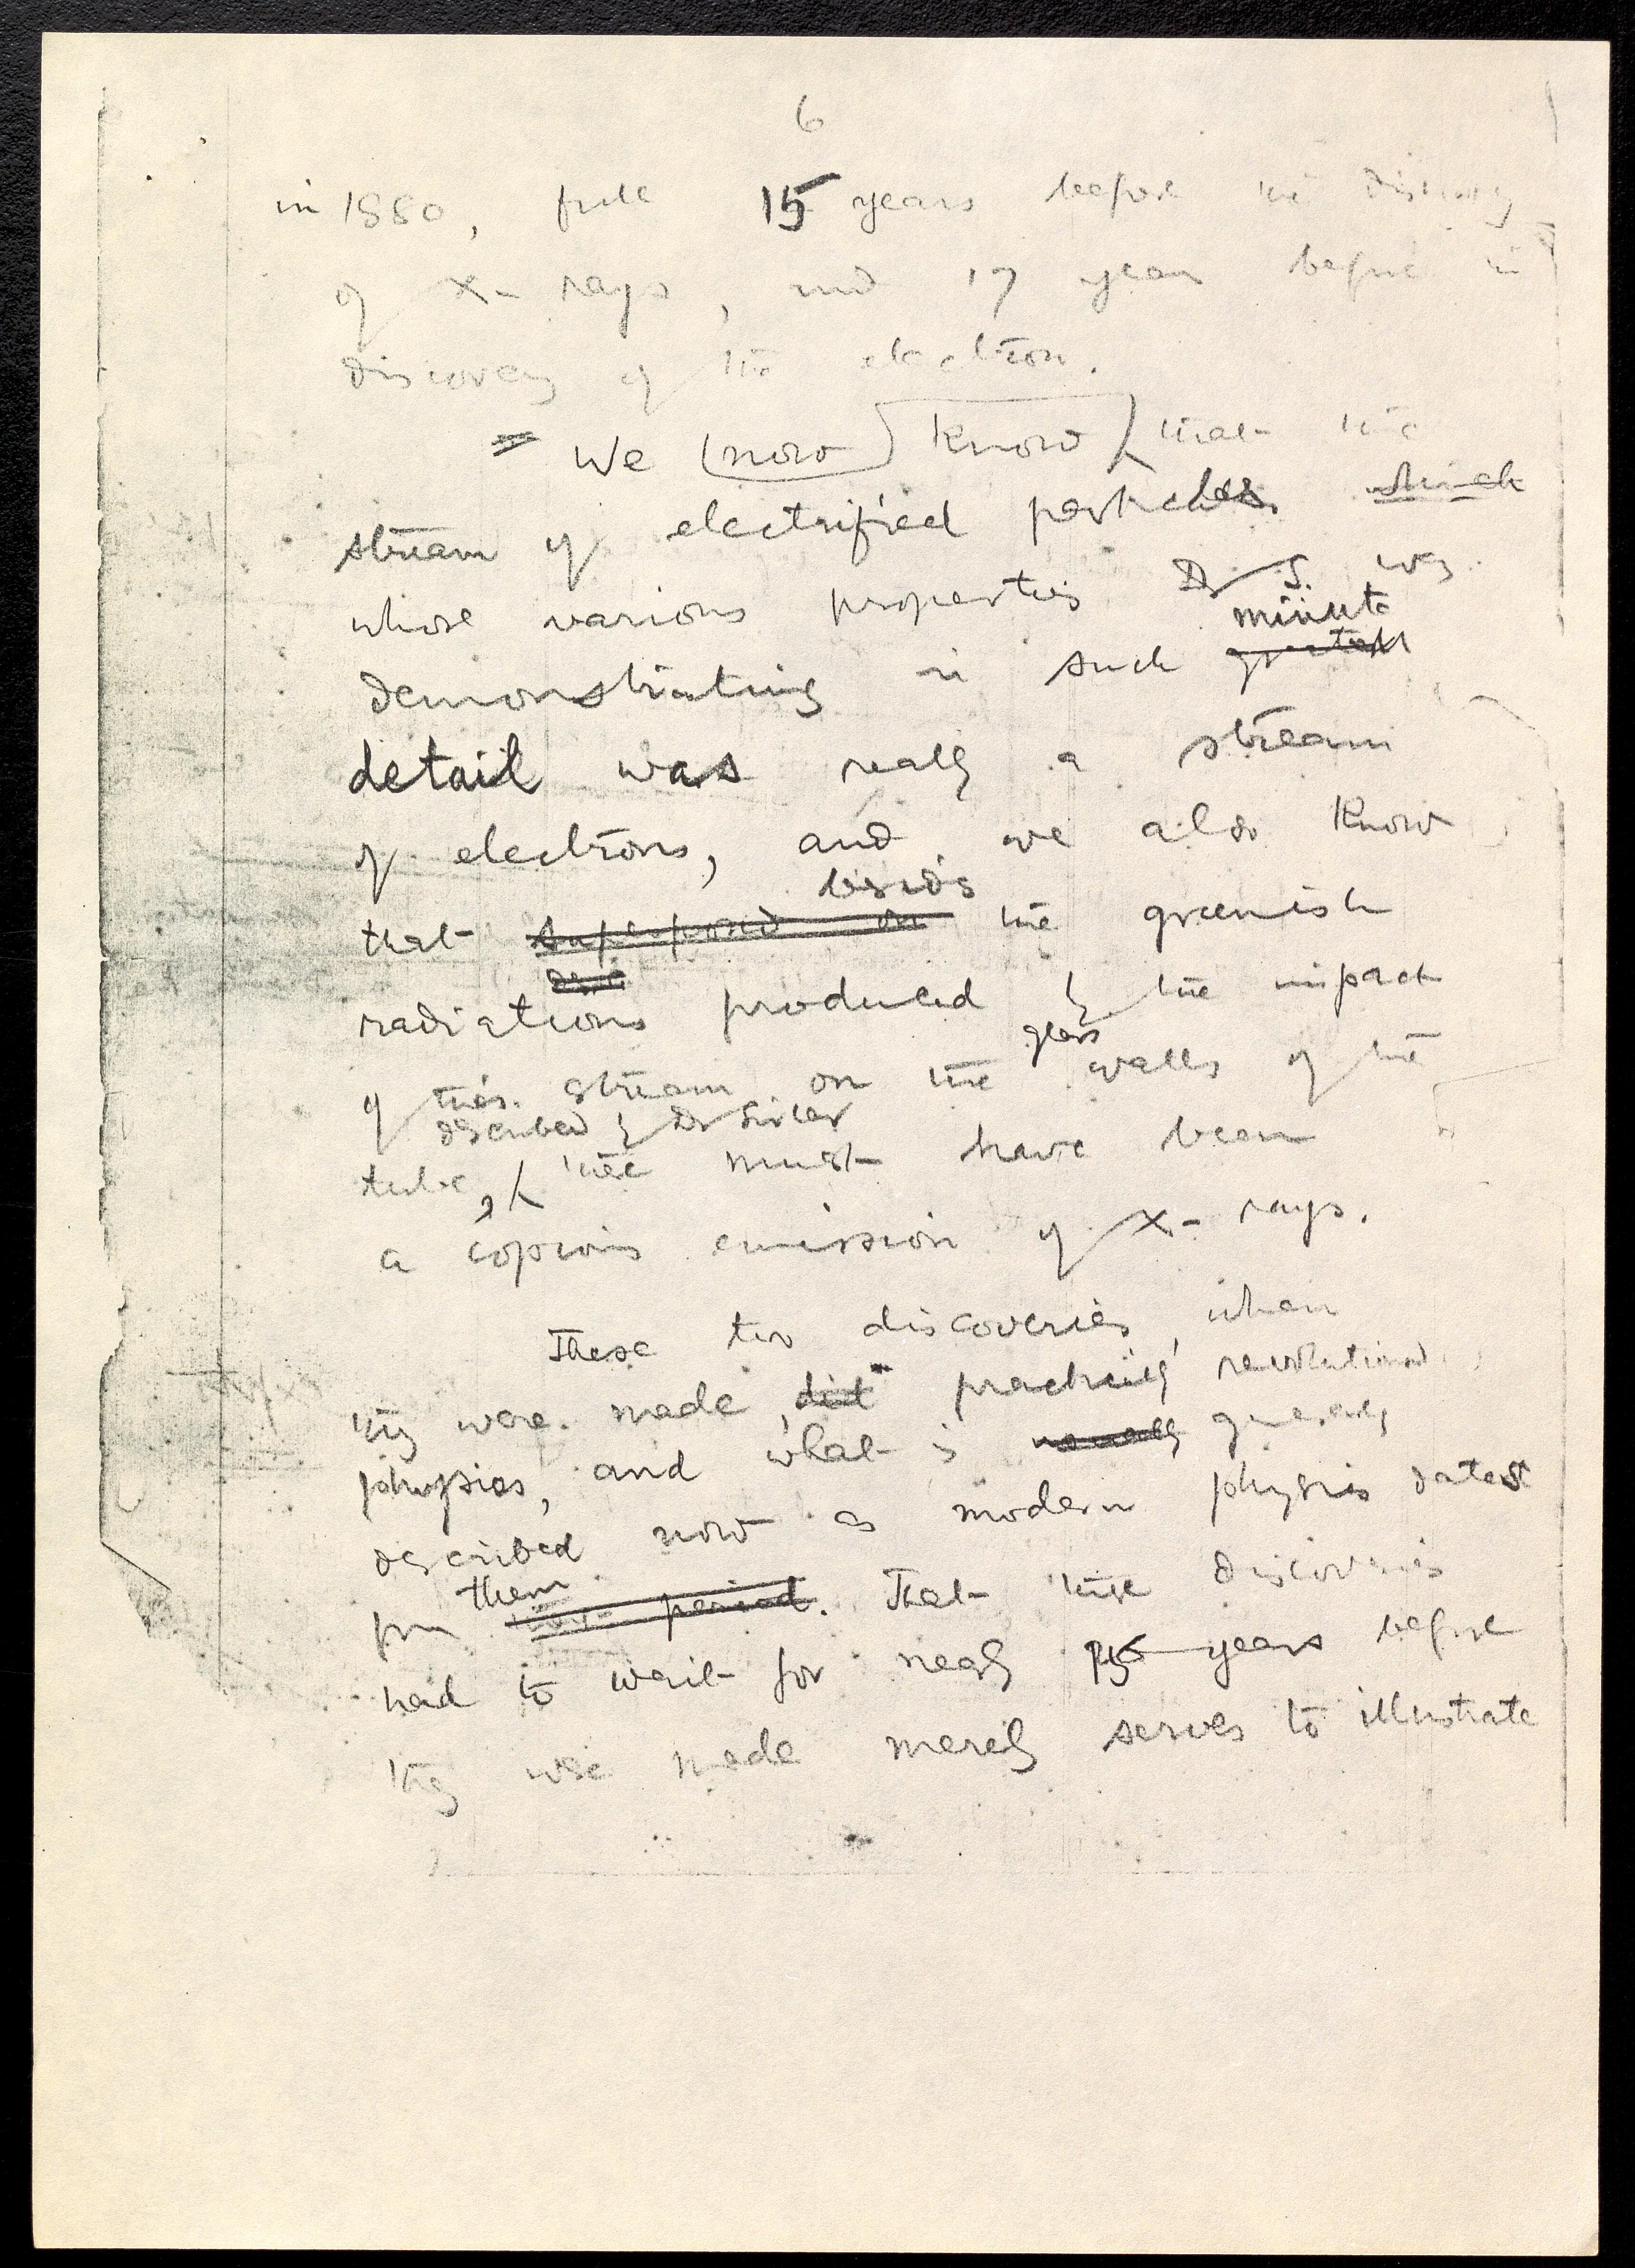 6
in 1880, full 15 years before the discovery
of X-rays, and 17 years before the
discovery of the electron.
We now know that the
stream of electrified particles which
whose various properties Dr S. was
minute
demonstrating in such
detail was really a stream
of electrons, and we also know
beside
that superposed on the greenish
radiations produced by the impact
glass
of this stream on the walls of the
described by Dr Sircar
tube, there must have been
a copious emission of X-rays.
These two discoveries, when
they were made, did practically revolutionise
physics, and what is usually generally
described now as modern physics dates
them
from period. That these discoveries
had to wait for nearly 15 years before
they were made merely serves to illustrate